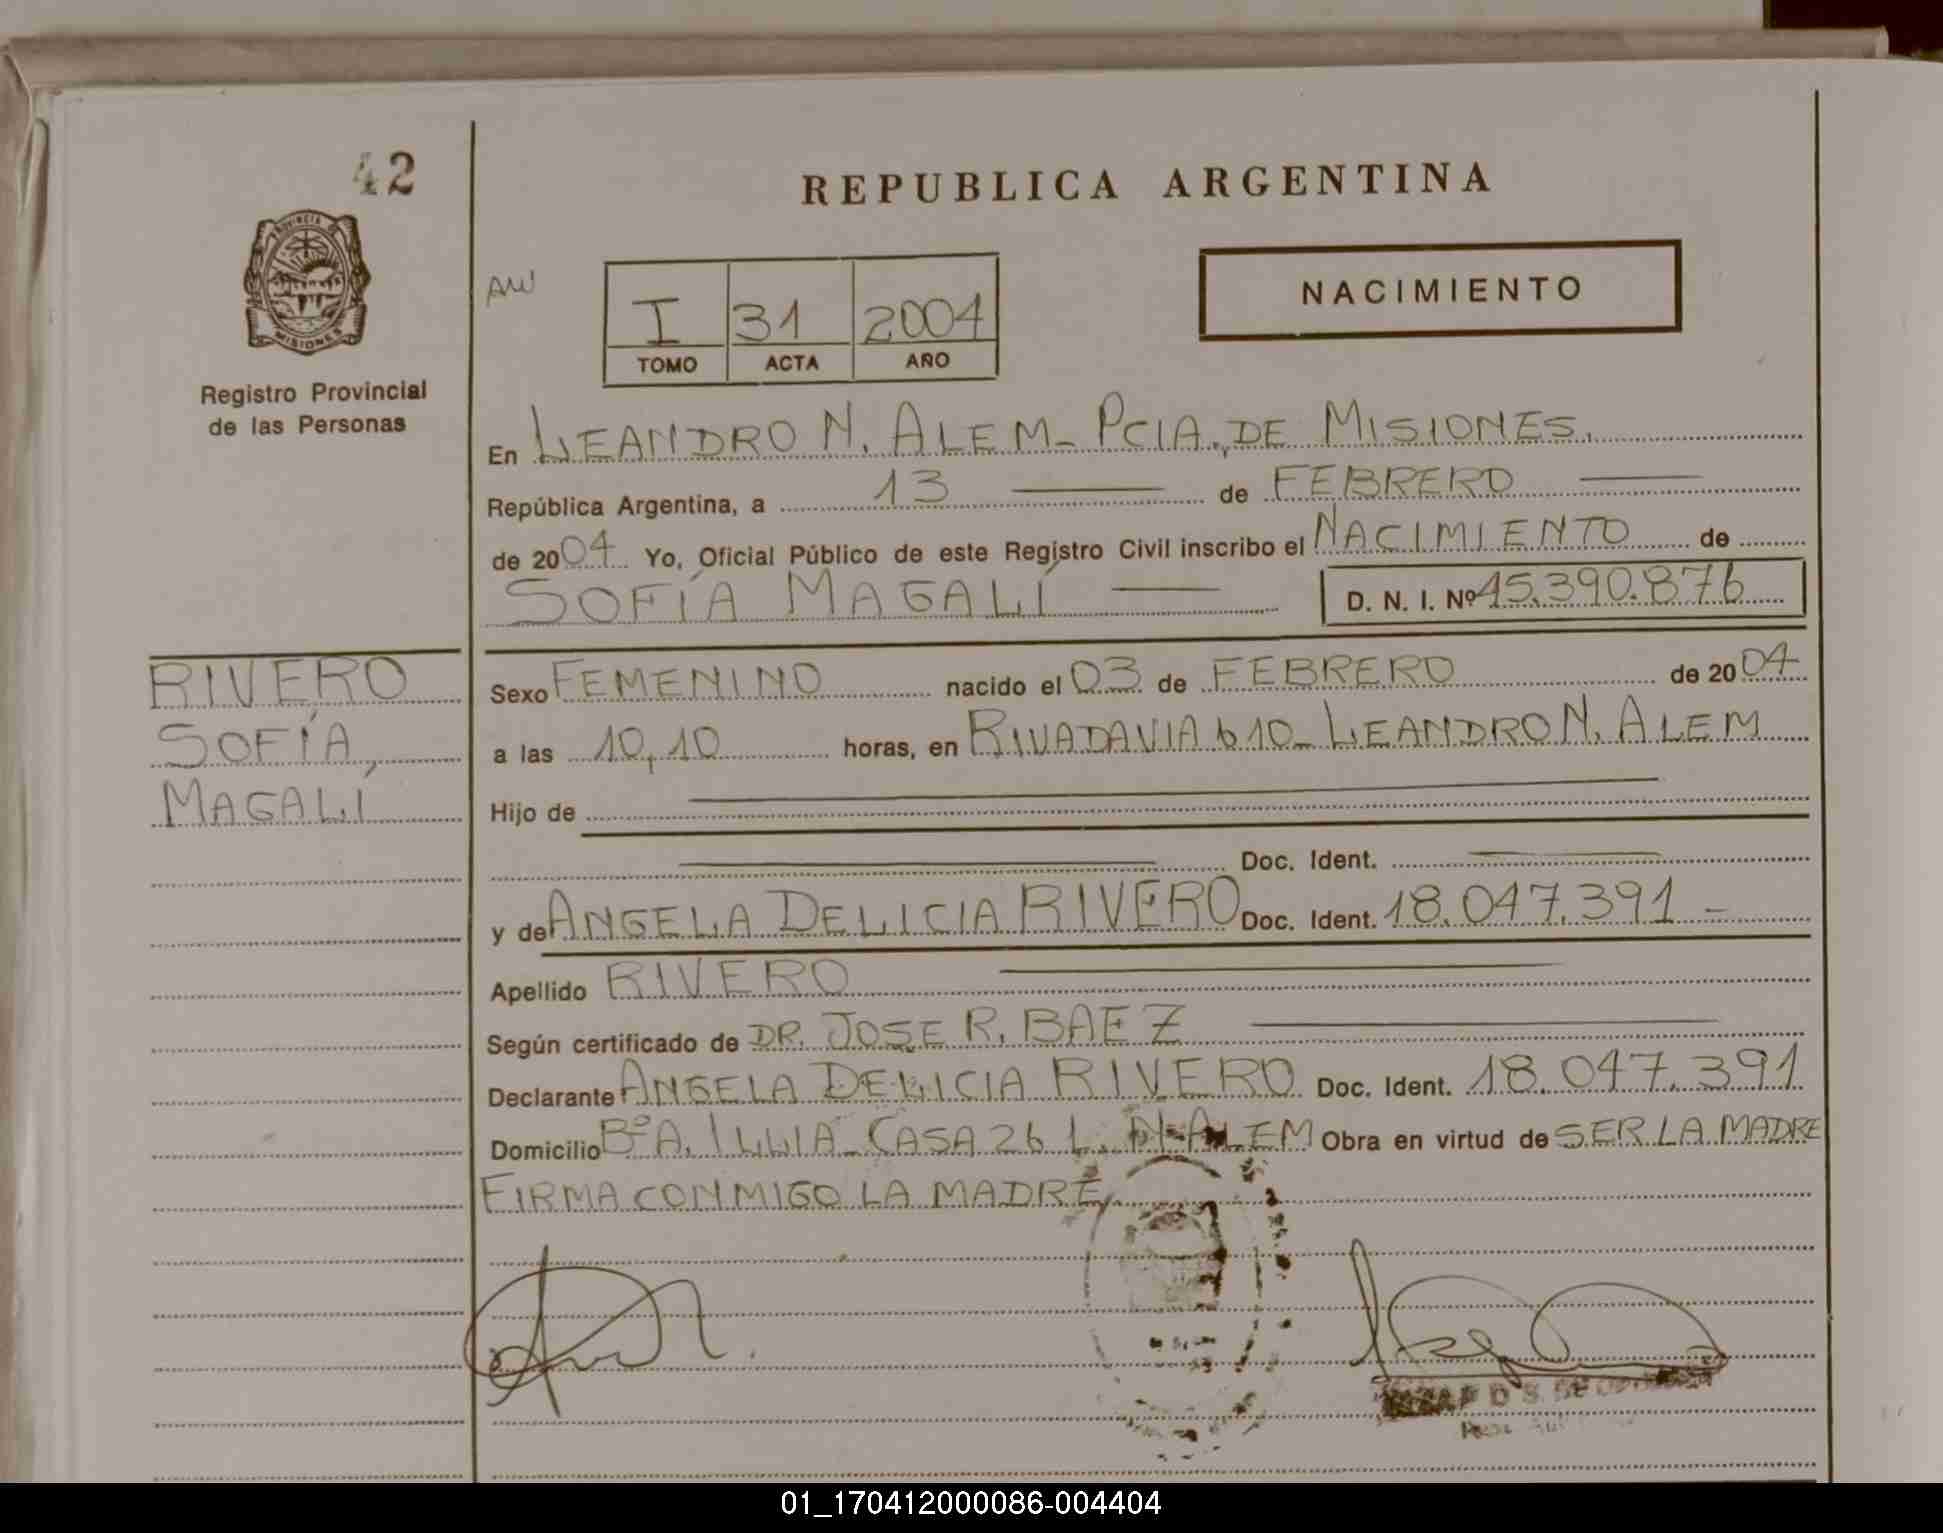 42
PROVINCIA DE
MISIONES
Registro Provincial
de las Personas
REPUBLICA ARGENTINA
AW
I 31 2004
TOMO ACTA AÑO
NACIMIENTO
En LEANDRO N. ALEM - PCIA. DE MISIONES.
República Argentina, a 13 de FEBRERO
de 2004 Yo, Oficial Público de este Registro Civil inscribo el NACIMIENTO de
SOFÍA MAGALÍ D. N. I. Nº 45.390.876
RIVERO
SOFÍA
MAGALÍ
Sexo FEMENINO nacido el 03 de FEBRERO de 2004
a las 10,10 horas, en RIVADAVIA 610 - LEANDRO N. ALEM
Hijo de
Doc. Ident.
y de ANGELA DELICIA RIVERO Doc. Ident. 18.047.391 -
Apellido RIVERO
Según certificado de DR. JOSE R. BAEZ
Declarante ANGELA DELICIA RIVERO Doc. Ident. 18.047.391
Domicilio Bº A. ILLIA - CASA 26 L. N. ALEM Obra en virtud de SER LA MADRE
FIRMA CONMIGO LA MADRE.
01_170412000086-004404